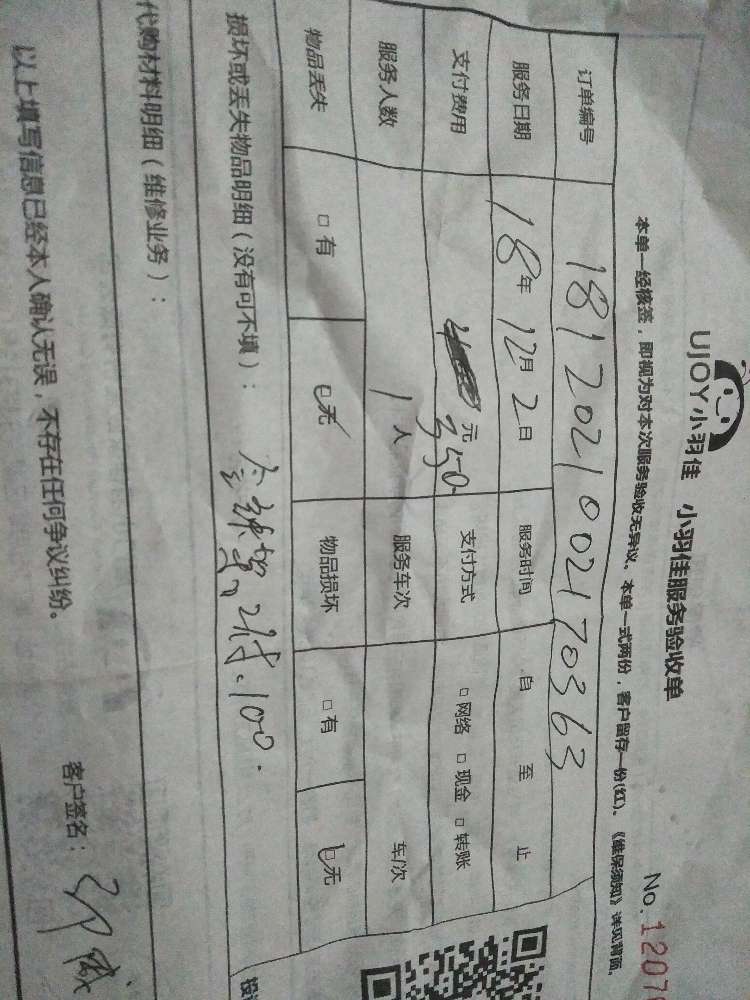 UJOY小羽佳 小羽佳服务验收单
No. 1207
本单一经核签，即视为对本次服务验收无异议。本单一式两份，客户留存一份(红)。《维保须知》详见背面。
订单编号 1812021002170363
服务日期 18年12月2日 服务时间 自 至 止
支付费用 元 350 支付方式 □网络 □现金 □转账
服务人数 1人 服务车次 车/次
物品丢失 □有 □无 物品损坏 □有 □无
损坏或丢失物品明细（没有可不填）： 2 100.
代购材料明细（维修业务）：
以上填写信息已经本人确认无误，不存在任何争议纠纷。
客户签名：